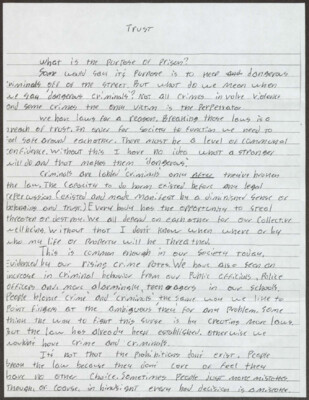 TRUST
What is the Purpose of Prison?
Some would say its Purpose is to keep dangerous
criminals off of the street. But what do we mean when
we say "dangerous criminals"? Not all crimes involve violence
and some crimes the only victim is the Perpetrator.
We have laws for a reason. Breaking those laws is a
breach of trust. In order for society to function we need to
feel safe around eachother. There must be a level of
confidence. Without this I have no idea what a stranger
will do and that makes them "dangerous".
Criminals are labled criminals only after they've broken
the law. The capacity to do harm existed before any legal
repercussion existed and made manifest by a diminished sense of
and trust. Everybody has the opportunity to steal
threaten or destroy. We all depend on eachother for our collective
wellbeing. Without that I dont know when where or by
who my life or Property will be threatened.
This is common enough in our society today,
Evidenced by our rising crime rates. We have also seen an
increase in criminal behavior from our Public officials, Police
officers and more alarmingly, teenagers in our schools.
People blame crime and criminals the same way we like to
Point fingers at the ambiguous them for any Problem. Some
think the way to fight this surge is by creating more laws
But the law has already been established. Otherwise we
wouldnt have crime and criminals.
Its not that the Prohibitions dont exist. People
break the law because they dont care or feel they
have no other choice. Sometimes People just make mistakes
Though, of course, in hindsight every bad decision is a mistake